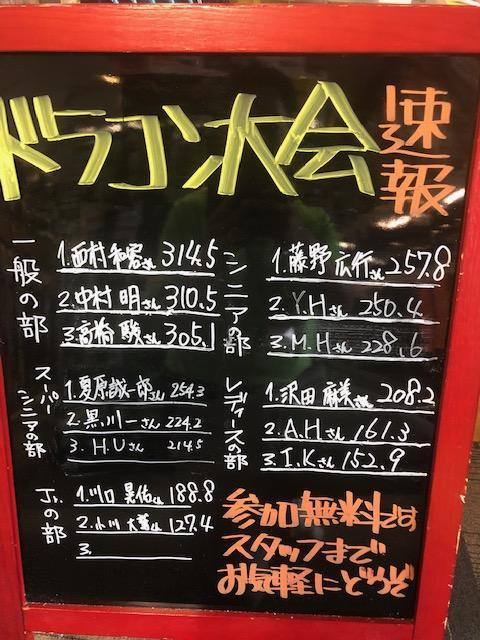 ドラコン大会
速報
一般の部
1.西村和宏さん 314.5
2.中村 明さん 310.5
3.高橋 駿さん 305.1
シニアの部
1.藤野 広行さん 257.8
2.Y.Hさん 250.4
3.M.Hさん 228.6
スーパーシニアの部
1.夏原誠一郎さん 254.3
2.黒川一さん 224.2
3.H.Uさん 214.5
レディースの部
1.沢田 麻美さん 208.2
2.A.Hさん 161.3
3.I.Kさん 152.9
Jr.の部
1.川口 晃佑くん 188.8
2.小川 大くん 127.4
3.
参加無料です
スタッフまで
お気軽にどうぞ